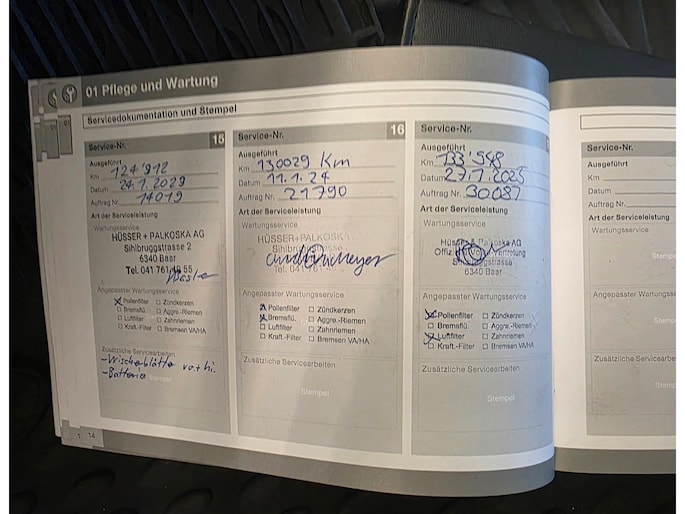 01 Pflege und Wartung
Servicedokumentation und Stempel
Service-Nr. 15
Ausgeführt
Km 124'912
Datum 24.1.2023
Auftrag Nr. 14019
Art der Serviceleistung
Wartungsservice
HÜSSER + PALKOSKA AG
Sihlbruggstrasse 2
6340 Baar
Tel. 041 761 55
Angepasster Wartungsservice
Pollenfilter Zündkerzen
Bremsflü. Aggre.-Riemen
Luftfilter Zahnriemen
Kraft.-Filter Bremsen VA/HA
Zusätzliche Servicearbeiten
- Wischerblätter vo.+hi.
- Batterie
Stempel
1 14
Service-Nr. 16
Ausgeführt
Km 130029 Km
Datum 11.1.24
Auftrag Nr. 21790
Art der Serviceleistung
Wartungsservice
HÜSSER+PALKOSKA
Sihlbruggstrasse
6340 Baar
Tel. 041 761
Angepasster Wartungsservice
Pollenfilter Zündkerzen
Bremsflü. Aggre.-Riemen
Luftfilter Zahnriemen
Kraft.-Filter Bremsen VA/HA
Zusätzliche Servicearbeiten
Stempel
Service-Nr.
Ausgeführt
Km 133'548
Datum 27.1.2025
Auftrag Nr. 30087
Art der Serviceleistung
Wartungsservice
Hüsser & Palkoska AG
Offiz Volvo Vertretung
Sihlbruggstrasse
6340 Baar
Angepasster Wartungsservice
Pollenfilter Zündkerzen
Bremsflü. Aggre.-Riemen
Luftfilter Zahnriemen
Kraft.-Filter Bremsen VA/HA
Zusätzliche Servicearbeiten
Stempel
Service-Nr.
Ausgeführt
Km
Datum
Auftrag Nr.
Art der Serviceleistung
Wartungsservice
Angepasster Wartungs
Pollenfilter
Bremsflü.
Luftfilter
Kraft.-Filter
Zusätzliche Servicearb